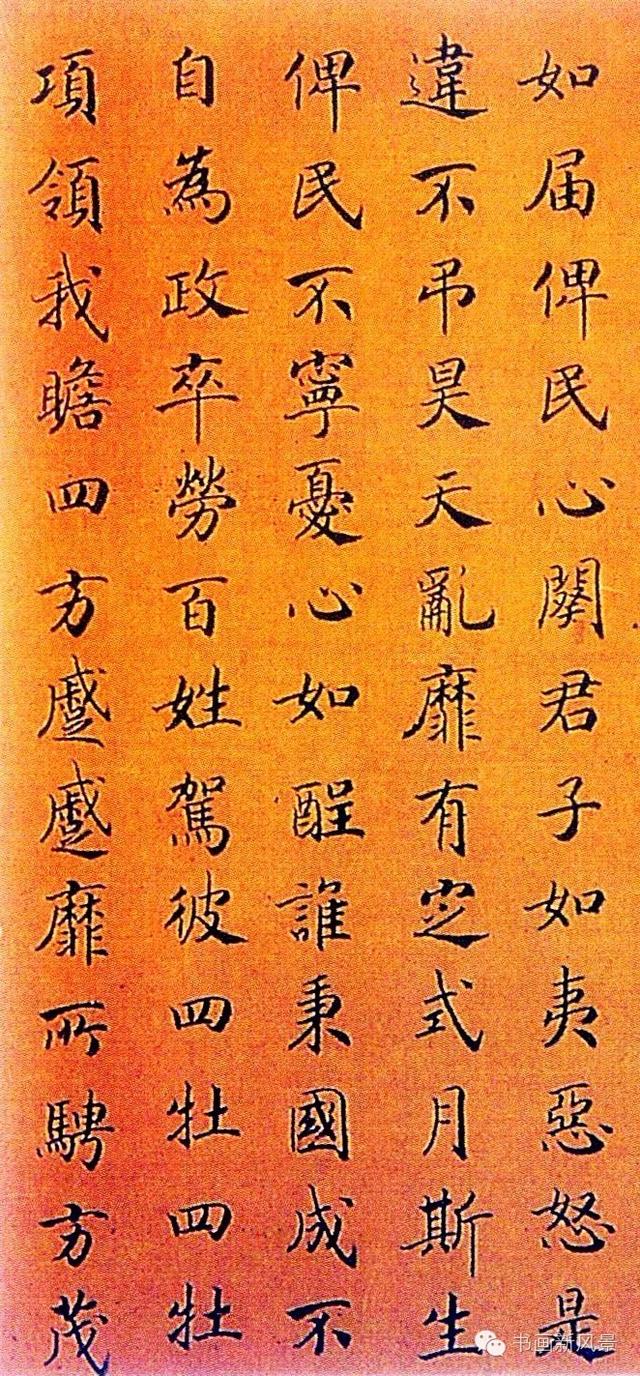 如届俾民心闋君子如夷惡怒是
違不弔昊天亂靡有定式月斯生
俾民不寧憂心如酲誰秉國成不
自為政卒勞百姓駕彼四牡四牡
項領我瞻四方蹙蹙靡所騁方茂
书画新风景